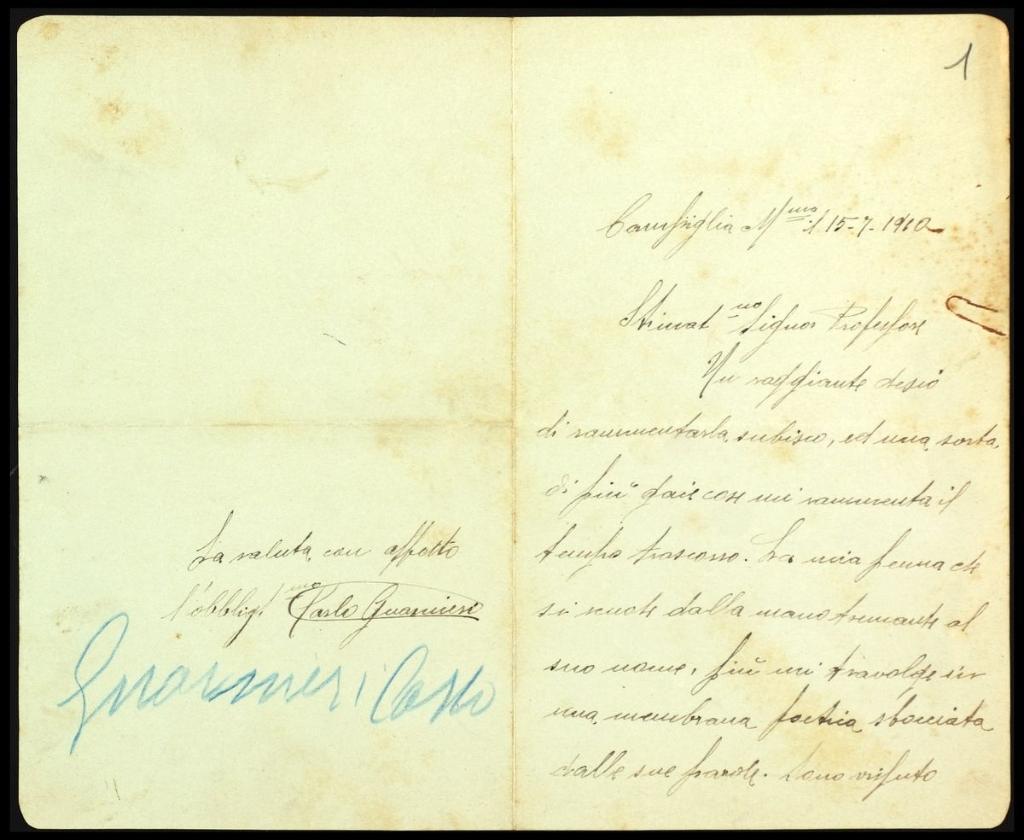 1
Camsiglia M.mo li 15-7-1910
Stimat.mo Signor Professore
Un raggiante desio
di rammentarla subisco, ed una sorta
di più gaie cose mi rammenta il
tempo trascorso. La mia penna che
si scuote dalla mano tremante al
suo nome, più mi travolge in
una membrana poetica sbocciata
dalle sue parole. Sono
La saluta con affetto
l'obbligt.mo Carlo Guarnieri
Guarnieri Carlo